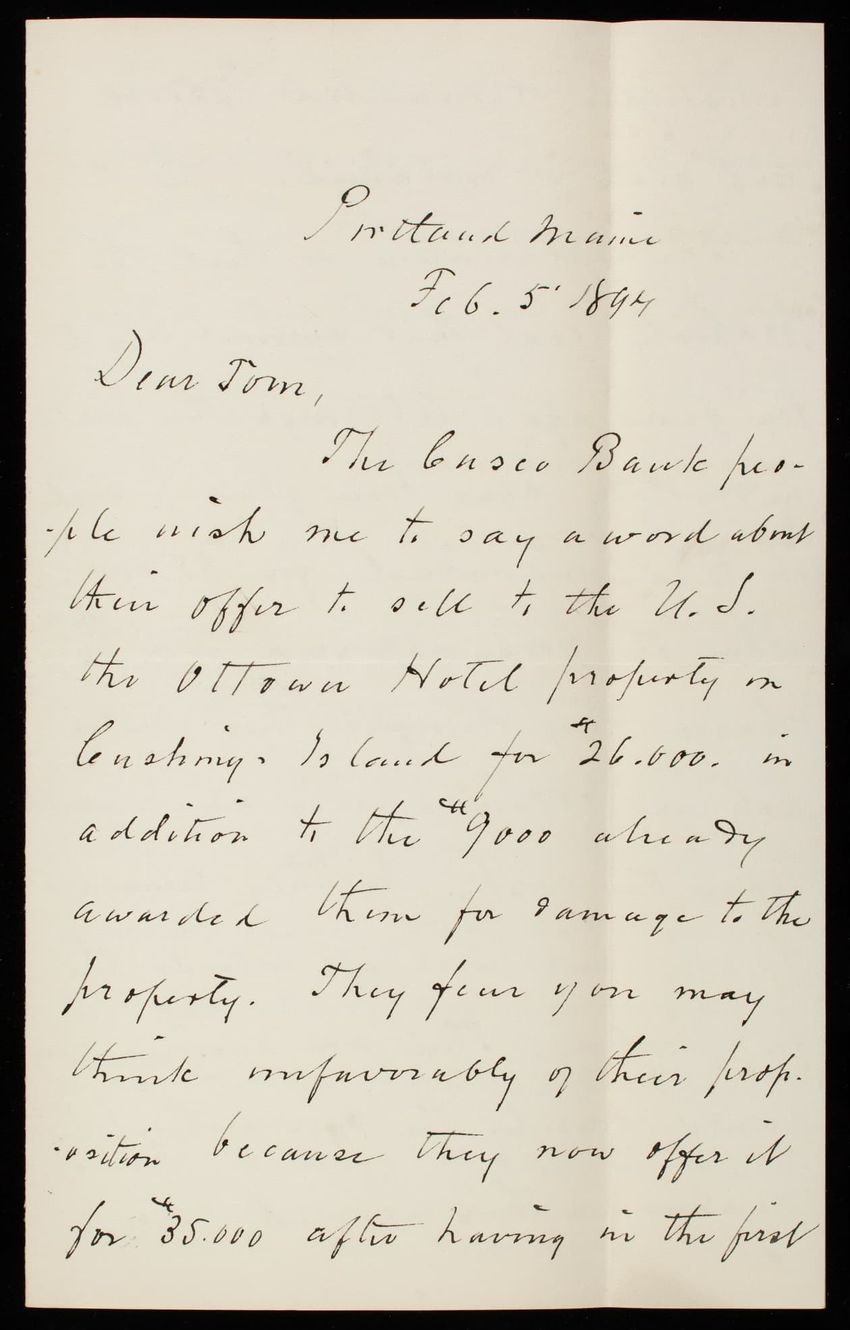 Portland Maine
Feb. 5' 1894
Dear Tom,
The Casco Bank peo-
-ple wish me to say a word about
their offer to sell to the U.S.
the Ottawa Hotel property on
Cushing's Island for $26.000. in
addition to the $9000 already
awarded them for damage to the
property. They fear you may
think unfavorably of their prop-
-osition because they now offer it
for $35.000 after having in the first